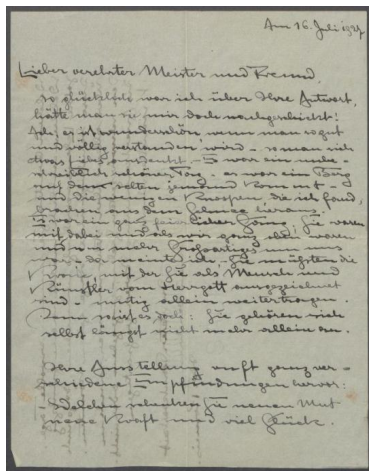 Am 16. Juli 1927
Lieber verehrter Meister und Freund,
so glücklich war ich über Ihre Antwort,
hätte man sie mir doch nachgeschickt!
Ach, es ist wunderschön, wenn man so gut
und völlig verstanden wird - wo man sich
etwas liebes ausdenkt - Es war ein unbe-
schreiblich schöner Tag - es war ein Berg
auf den selten jemand kommt -
und die wenigen Knospen, die ich fand,
brachen aus dem Schnee heraus.
Es war ein ganz lieber Gang: Sie waren
mit dabei und als wir ganz oben waren
und nur mehr Großartiges um uns
war, da meinte ich, Sie müßten die
mit der Sie als Mensch und
Künstler vom Herrgott ausgezeichnet
sind - mutig allein weitertragen.
Dann ist es doch: Sie gehören sich
selbst längst nicht mehr allein an.
Ihre Ausstellung ruft ganz ver-
schiedene Empfindungen hervor:
schenken Sie neuen Mut
neue Kraft und viel Glück.